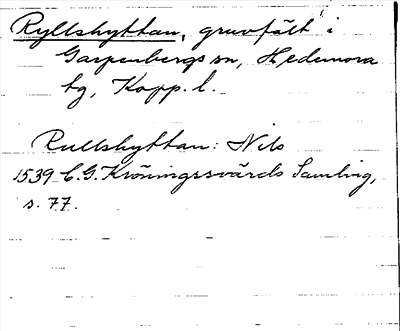 Ryllshyttan, gruvfält i
Garpenbergs sn, Hedemora
tg, Kopp. l.
Rullshyttan: Nils
1539 C.G. Kröningssvärds Samling,
s. 77.